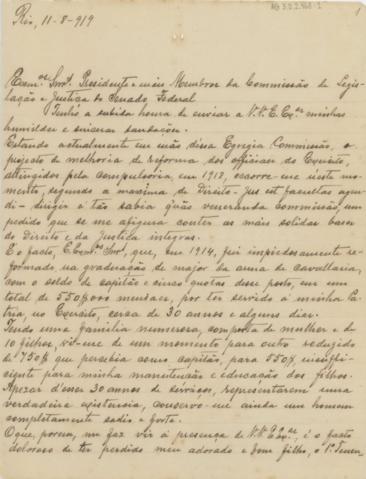 Rio, 11-8-919
1
Exmos Snrs Presidente e mais Membros da Commissão de Legis-
lação e Justiça do Senado Federal
Tenho a subida honra de enviar a V.V. E.Exas minhas
humildes e sinceras saudações.
Estando actualmente em mãos dessa Egregia Commissão, o
projecto de melhoria de reforma dos officiaes do Exercito,
attingidos pela compulsoria, em 1918, ocorre-me neste mo-
mento, segundo a maxima de Direito - Jus est facultas agen-
di - dirigir a tão sabia quão veneranda Commissão, um
pedido que se me afigura conter as mais solidas bases
do Direito e da Justiça integras.
E o facto, E.Exmos Snrs, que, em 1914, fui impiedosamente re-
formado na graduação de major da arma de Cavallaria,
com o soldo de capitão e cinco quotas desse posto, em um
total de 550$000 mensaes, por ter servido á minha Pa-
tria, no Exercito, cerca de 30 annos e alguns dias.
Tendo uma familia numerosa, composta de mulher e de
10 filhos, vi-me de um momento para outro reduzido
de 750$ que percebia como capitão, para 550$, insuffi-
ciente para minha manutenção e educação dos filhos.
Apezar d'esses 30 annos de serviços, representarem uma
verdadeira existencia, conservo-me ainda um homem
completamente sadio e forte.
O que, porem, me faz vir á presença de V.V. E.Exas, é o facto
doloroso de ter perdido meu adorado e bom filho, o 1º Tenen-